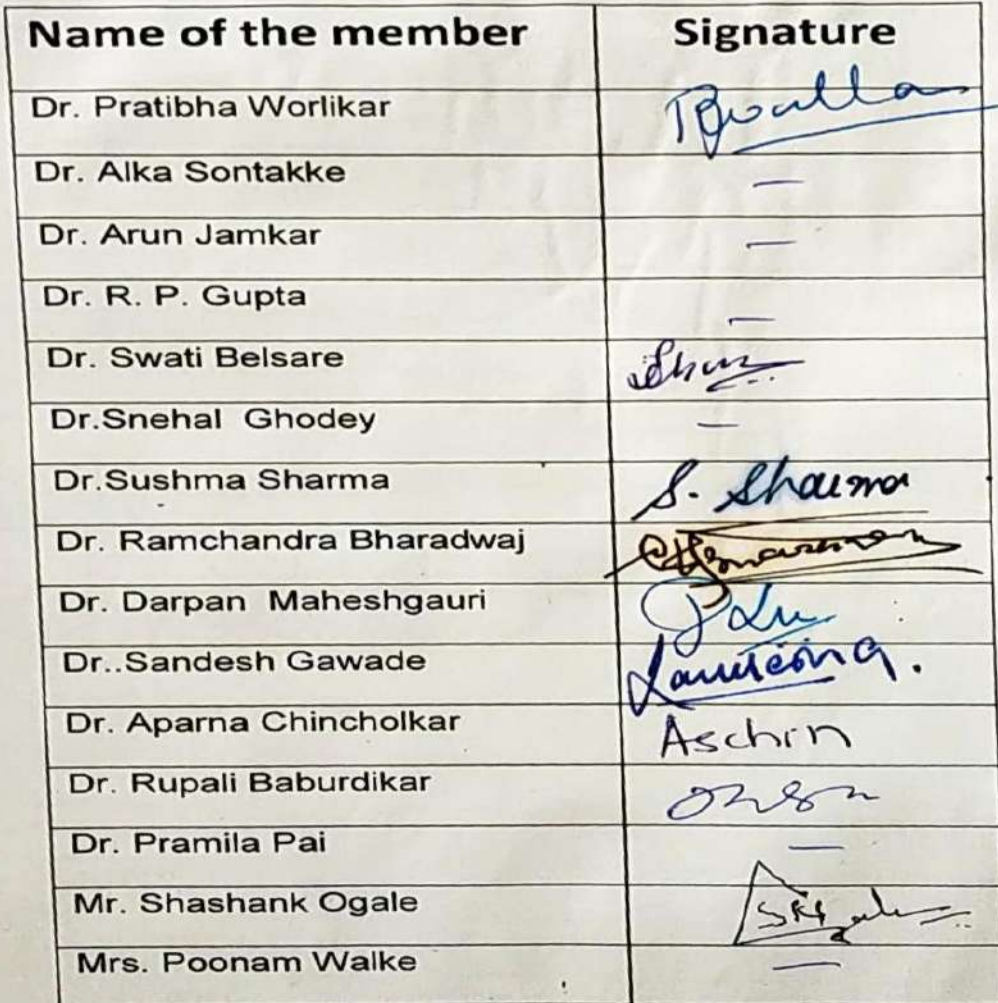 Name of the member Signature
Dr. Pratibha Worlikar
Dr. Alka Sontakke —
Dr. Arun Jamkar —
Dr. R. P. Gupta —
Dr. Swati Belsare
Dr.Snehal Ghodey —
Dr.Sushma Sharma S. Sharma
Dr. Ramchandra Bharadwaj
Dr. Darpan Maheshgauri
Dr..Sandesh Gawade
Dr. Aparna Chincholkar Aschrn
Dr. Rupali Baburdikar
Dr. Pramila Pai —
Mr. Shashank Ogale
Mrs. Poonam Walke —